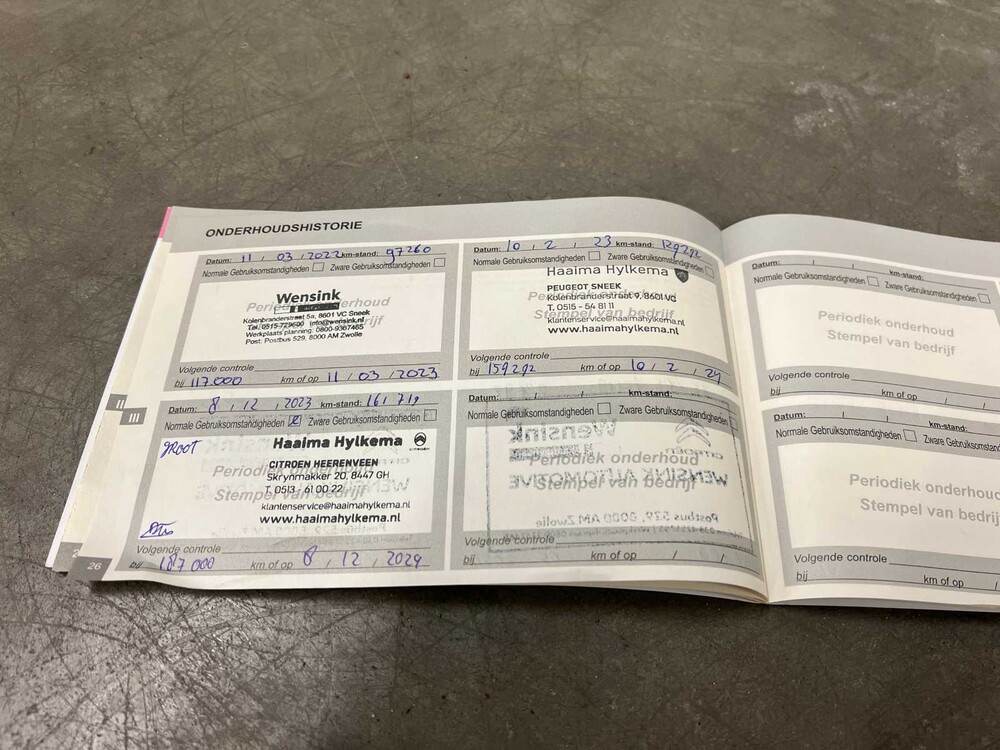 ONDERHOUDSHISTORIE
Datum: 11 / 03 / 2022 km-stand: 97260
Normale Gebruiksomstandigheden Zware Gebruiksomstandigheden
Periodiek onderhoud
Stempel van bedrijf
Wensink
Kolenbranderstraat 5a, 8601 VC Sneek
Tel. 0515-729600 info@wensink.nl
Werkplaats planning: 0800-9367465
Post: Postbus 529, 8000 AM Zwolle
Volgende controle
bij 117.000 km of op 11 / 03 / 2023
Datum: 10 / 2 / 23 km-stand: 129292
Normale Gebruiksomstandigheden Zware Gebruiksomstandigheden
Periodiek onderhoud
Stempel van bedrijf
Haaima Hylkema
PEUGEOT SNEEK
Kolenbranderstraat 9, 8601 VC
T. 0515 - 54 81 11
klantenservice@haaimahylkema.nl
www.haaimahylkema.nl
Volgende controle
bij 159292 km of op 10 / 2 / 24
Datum: 8 / 12 / 2023 km-stand: 161719
Normale Gebruiksomstandigheden Zware Gebruiksomstandigheden
GROOT
Periodiek onderhoud
Stempel van bedrijf
Haaima Hylkema
CITROEN HEERENVEEN
Skrynmakker 20, 8447 GH
T. 0513 - 61 00 22
klantenservice@haaimahylkema.nl
www.haaimahylkema.nl
Volgende controle
bij 187000 km of op 8 / 12 / 2024
Datum: / / km-stand:
Normale Gebruiksomstandigheden Zware Gebruiksomstandigheden
Periodiek onderhoud
Stempel van bedrijf
Wensink
CITROËN
WENSINK AUTOMOTIVE
Postbus 529, 8000 AM Zwolle
Volgende controle
bij km of op / /
II
III
26
Datum: / / km-stand:
Normale Gebruiksomstandigheden Zware Gebruiksomstandigheden
Periodiek onderhoud
Stempel van bedrijf
Volgende controle
bij km of op / /
Datum: / / km-stand:
Normale Gebruiksomstandigheden Zware Gebruiksomstandigheden
Periodiek onderhoud
Stempel van bedrijf
Volgende controle
bij km of op /